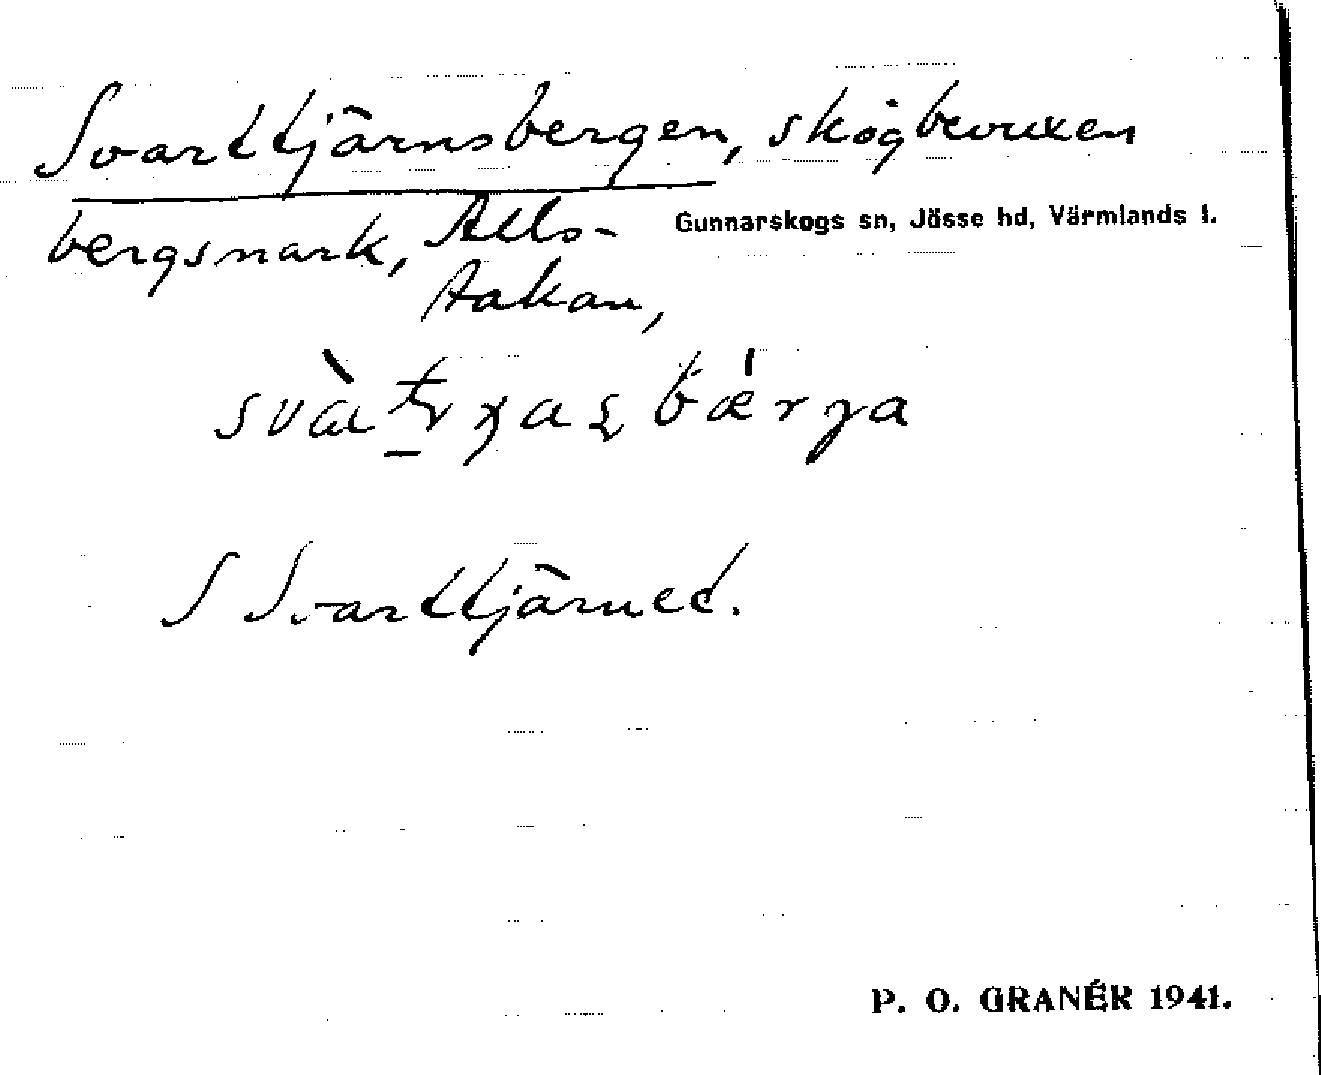 Svarttjärnsbergen, skogbevuxen
bergsmark, Alls-
Gunnarskogs sn, Jösse hd, Värmlands l.
takan,
S Svarttjärnet.
P. O. GRANÉR 1941.